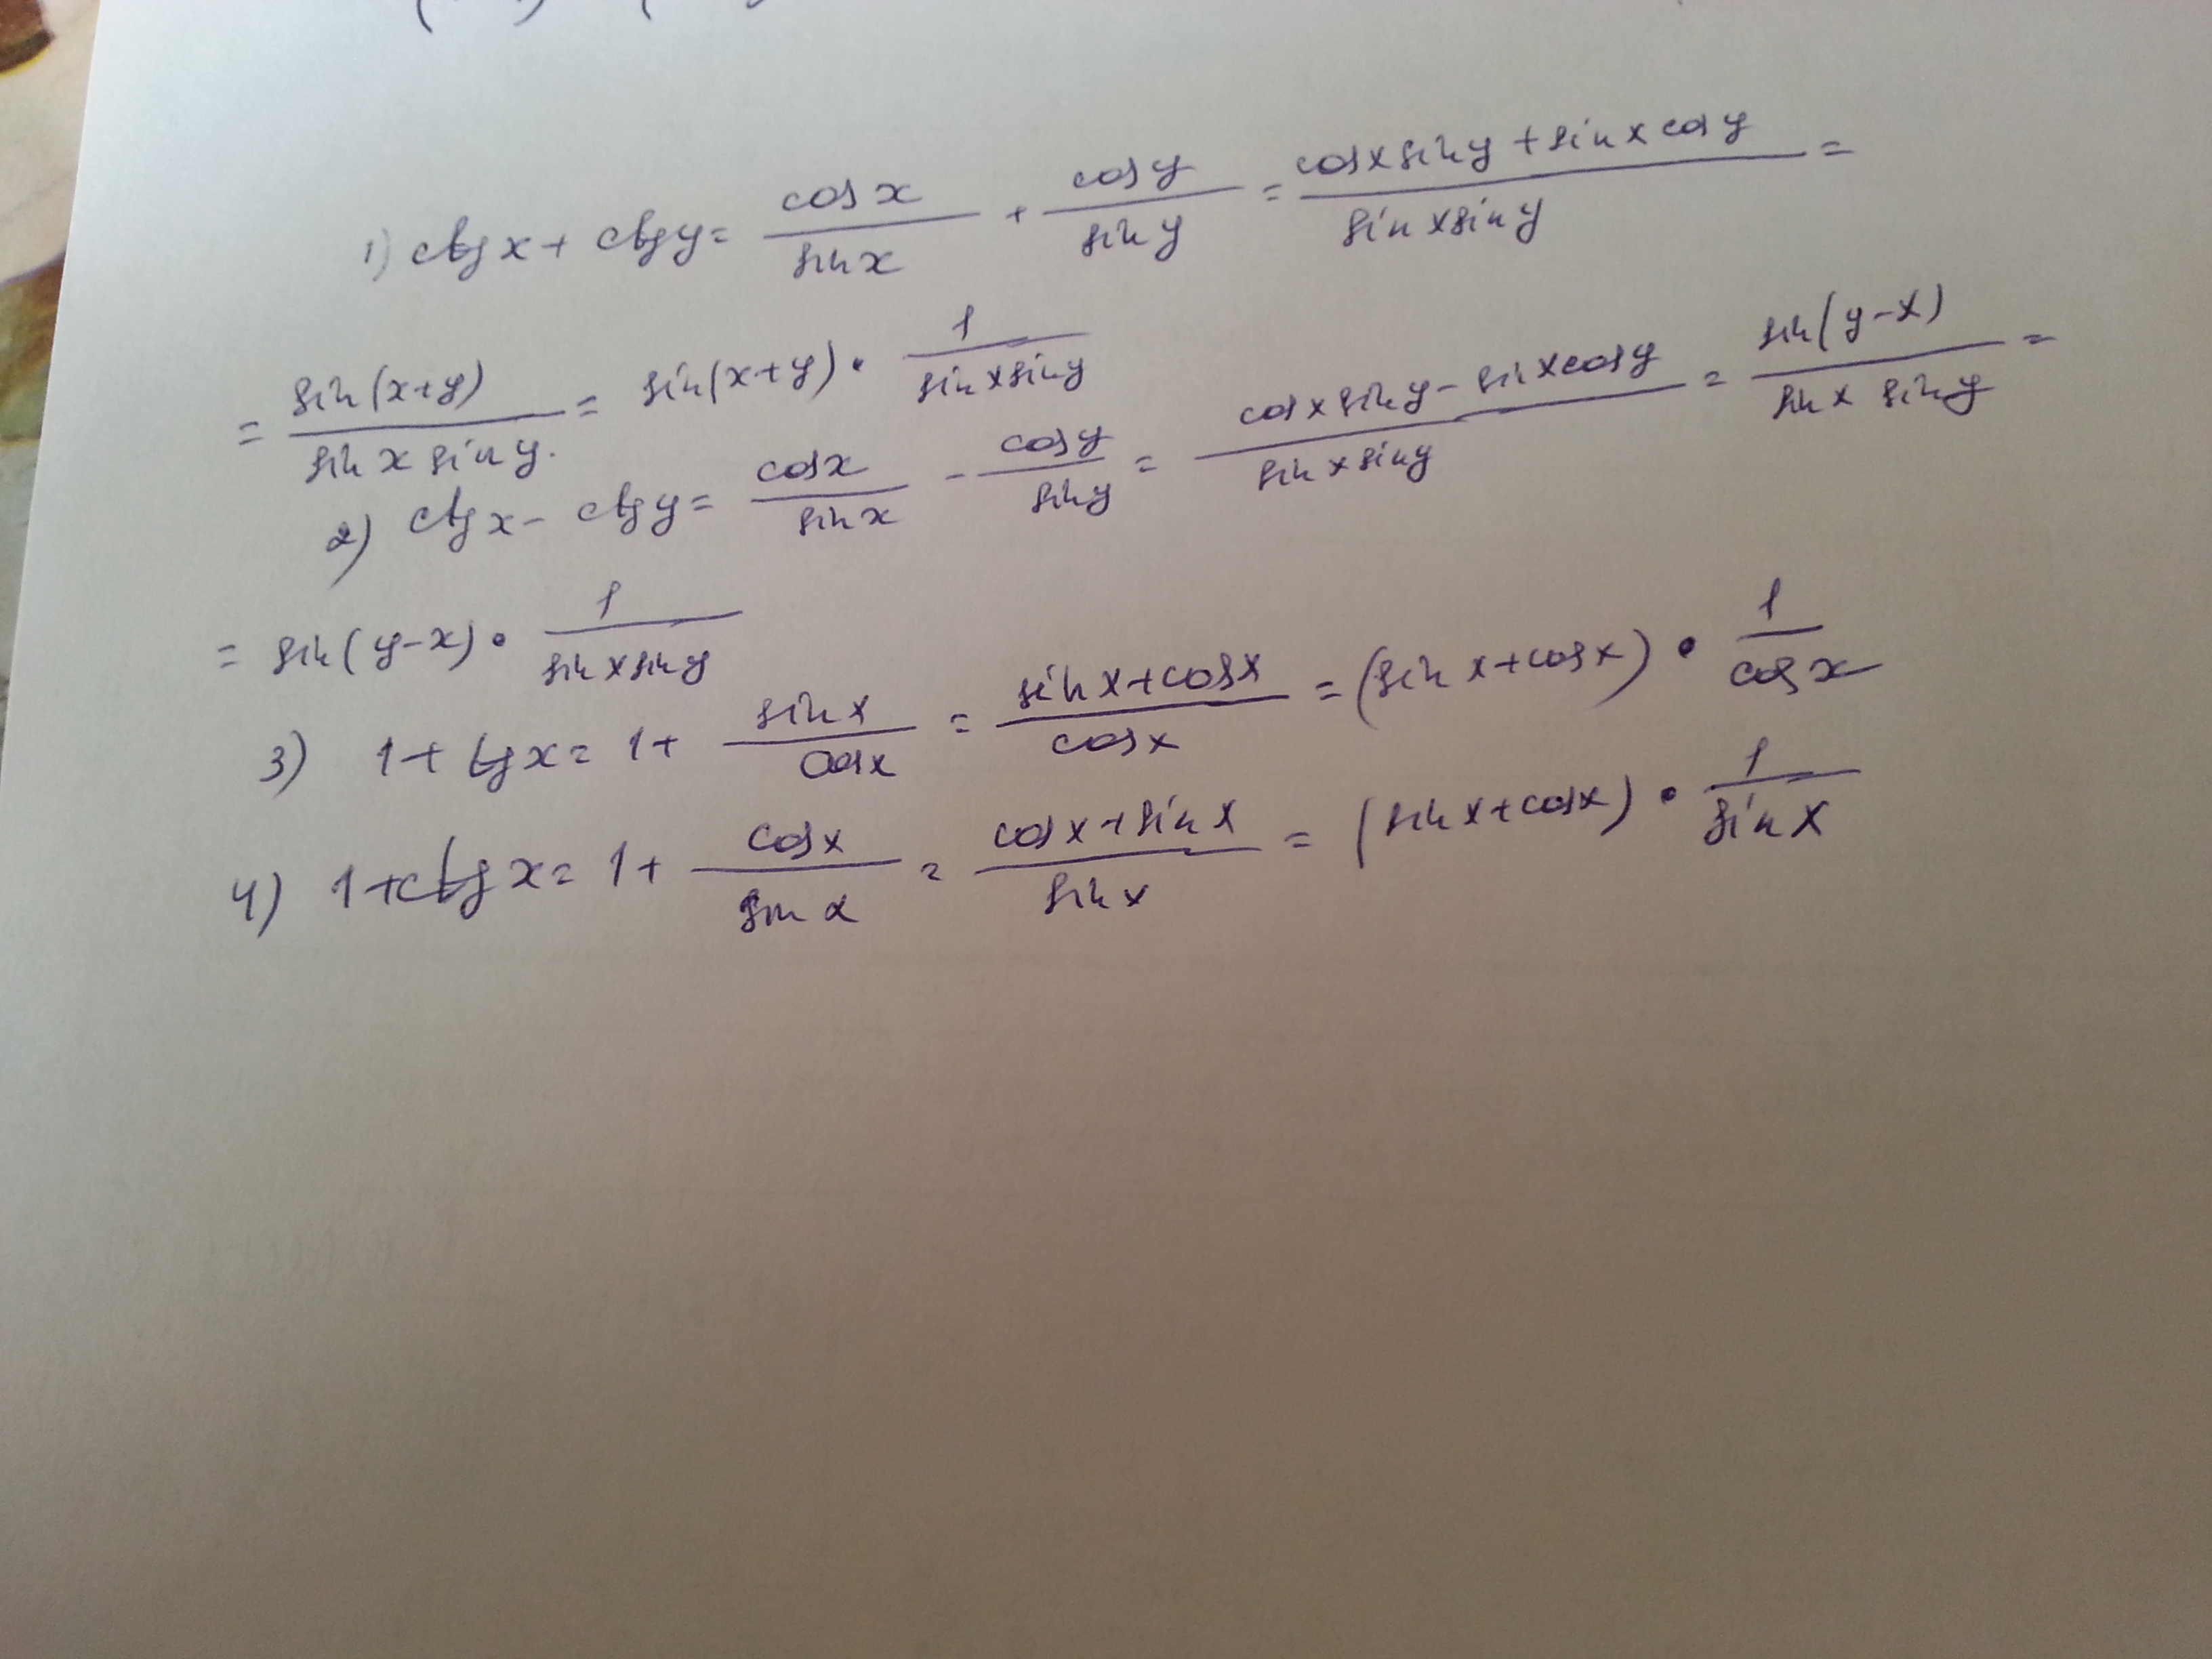 1) ctg x + ctg y = cos x / sin x + cos y / sin y = (cos x sin y + sin x cos y) / (sin x sin y) =
= sin(x+y) / (sin x sin y) = sin(x+y) · 1 / (sin x sin y)
2) ctg x - ctg y = cos x / sin x - cos y / sin y = (cos x sin y - sin x cos y) / (sin x sin y) = sin(y-x) / (sin x sin y) =
= sin(y-x) · 1 / (sin x sin y)
3) 1 + tg x = 1 + sin x / cos x = (sin x + cos x) / cos x = (sin x + cos x) · 1 / cos x
4) 1 + ctg x = 1 + cos x / sin x = (cos x + sin x) / sin x = (sin x + cos x) · 1 / sin x